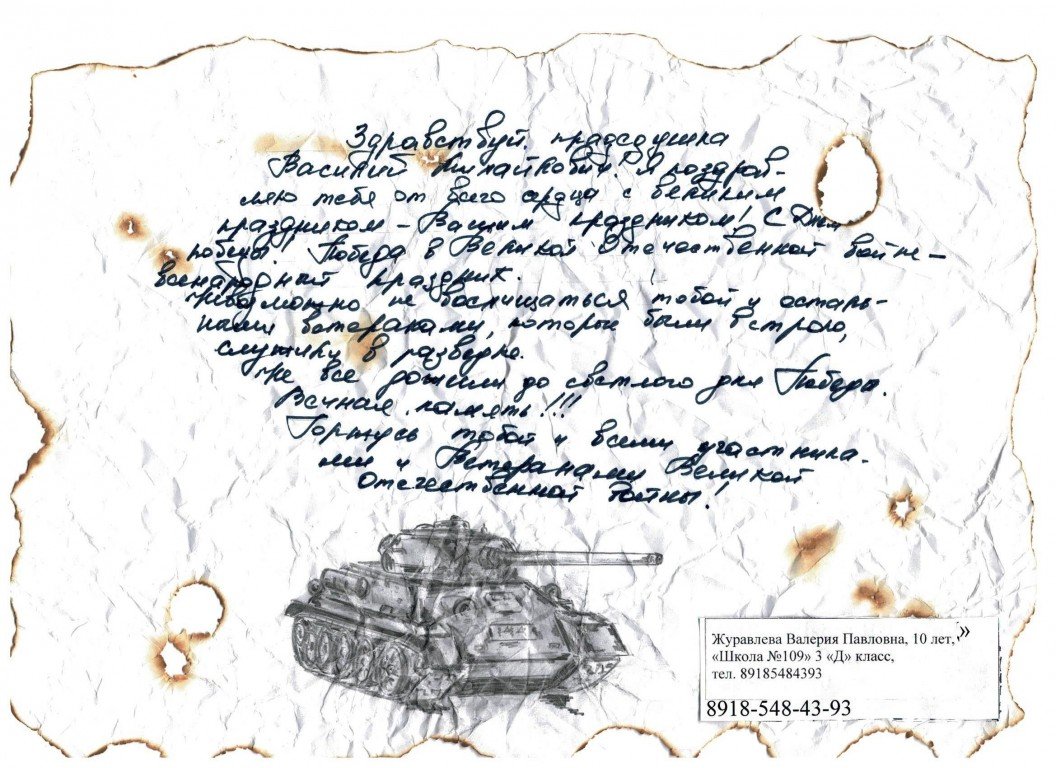 Здравствуй, прадедушка
Василий Михайлович! Я поздрав-
ляю тебя от всего сердца с великим
праздником - Вашим праздником! С Днём
победы! Победа в Великой Отечественной войне -
всенародный праздник.
Невозможно не восхищаться тобой и осталь-
ными ветеранами, которые были в строю,
служили в разведке.
Не все дошли до светлого дня Победы.
Вечная память!!!
Горжусь тобой и всеми участника-
ми и Ветеранами Великой
Отечественной Войны!
Журавлева Валерия Павловна, 10 лет,»
«Школа №109» 3 «Д» класс,
тел. 89185484393
8918-548-43-93